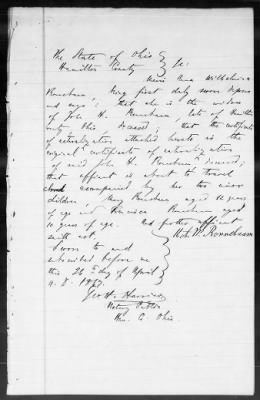 The State of Ohio } ss:
Hamilton County }
Anna Wilhelmina
being first duly sworn deposes
and says: that she is the widow
of John H. late of Hamilton
County Ohio deceased; that the certificate
of naturalization attached hereto is the
original certificate of naturalization
of said John H. deceased;
that affiant is about to travel
abroad accompanied by her two minor
children, Mary aged 12 years
of age and aged
10 years of age. And further affiant
saith not. Wilh. Ronnebaum
Sworn to and
subscribed before me
this 26th day of April
A.D. 1887.
Geo. H.
Notary Public
Ham. C. Ohio.